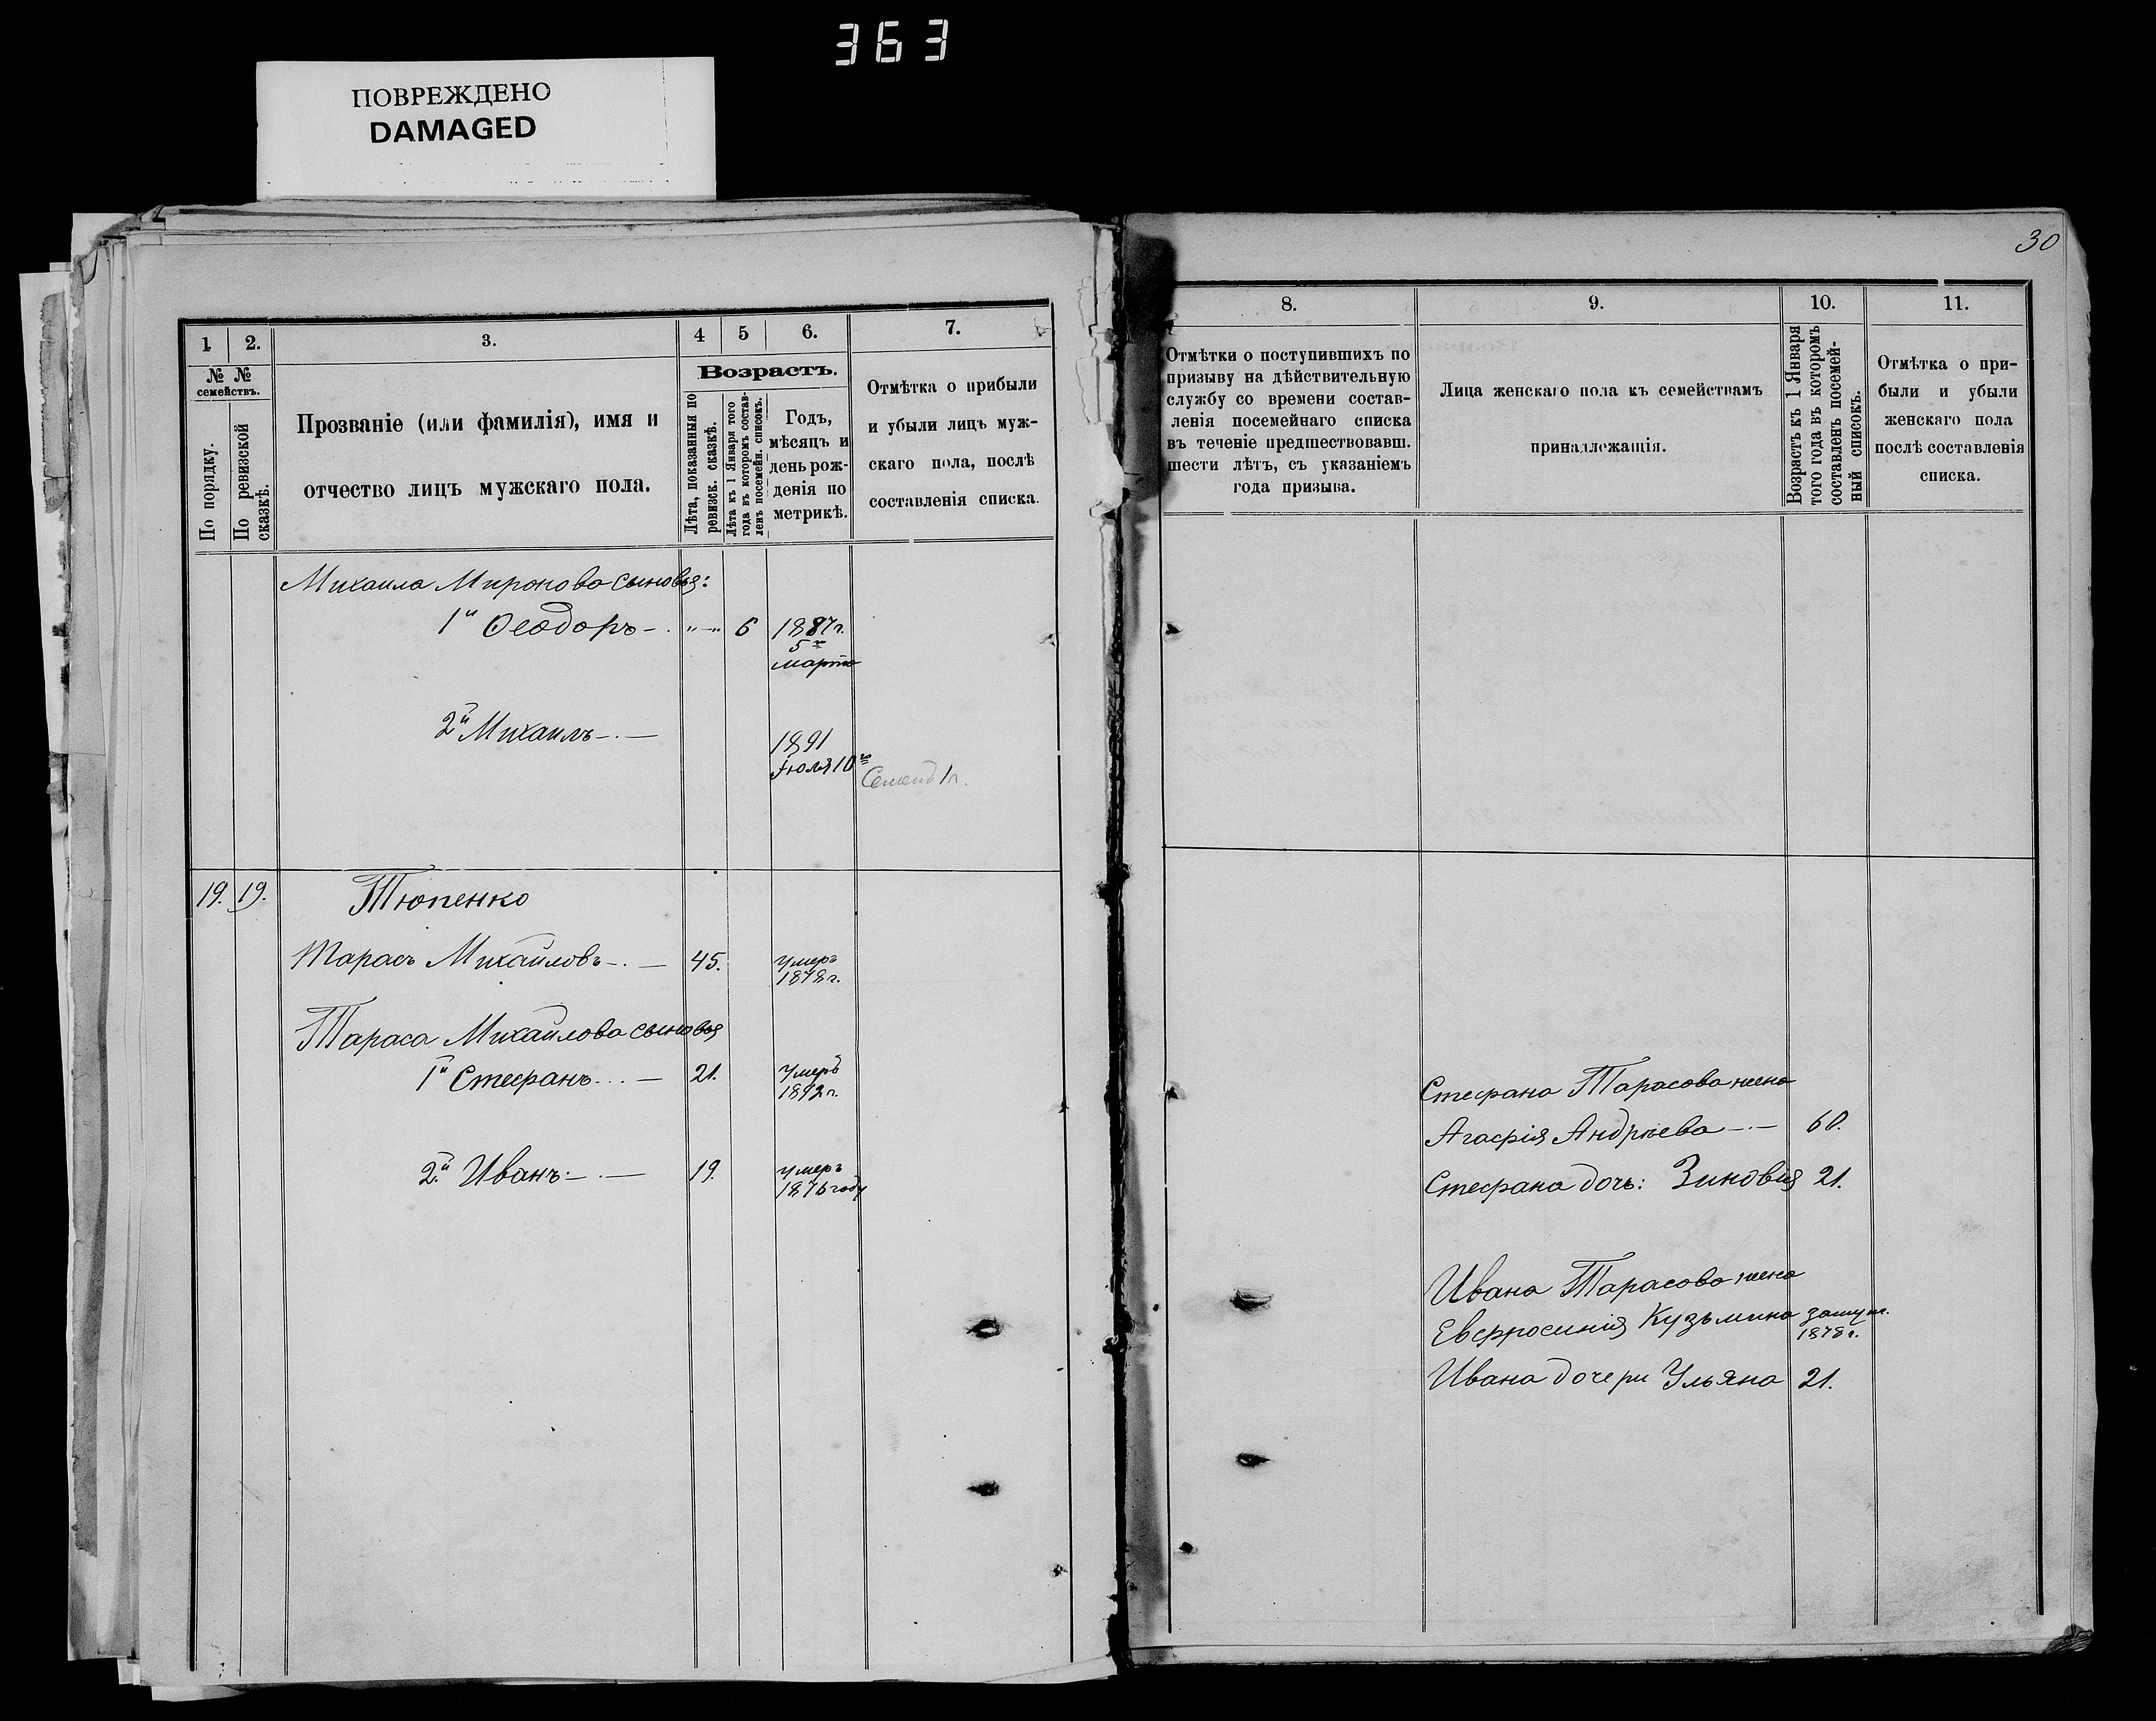 363
ПОВРЕЖДЕНО
DAMAGED
1
2.
3.
4
5
6.
7.
№ №
семействъ.
По порядку.
По ревизской
сказкѣ.
Прозваніе (или фамилія), имя и
отчество лицъ мужскаго пола.
Возрастъ.
Лѣта, показанныя по
ревизск. сказкѣ.
Лѣта къ 1 Января того
года въ которомъ состав-
ленъ посемейн. списокъ.
Годъ,
мѣсяцъ и
день рож-
денія по
метрикѣ.
Отмѣтка о прибыли
и убыли лицъ муж-
скаго пола, послѣ
составленія списка.
Михаила Миронова сыновья:
1й Ѳеодоръ 6 1887г.
5го
марта
2й Михаилъ
1891
Іюля 10го
Семенъ 1г.
19. 19. Тюпенко
Тарасъ Михайловъ 45. умеръ
1878г.
Тараса Михайлова сыновья
1й Стефанъ 21. умеръ
1892г.
2й Иванъ 19. умеръ
1876 году
30
8.
9.
10.
11.
Отмѣтки о поступившихъ по
призыву на дѣйствительную
службу со времени состав-
ленія посемейнаго списка
въ теченіе предшествовавш.
шести лѣтъ, съ указаніемъ
года призыва.
Лица женскаго пола къ семействамъ
принадлежащія.
Возрастъ къ 1 Января
того года въ которомъ
составленъ посемей-
ный списокъ.
Отмѣтка о при-
были и убыли
женскаго пола
послѣ составленія
списка.
Стефана Тарасова жена
Агафія Андрѣева 60.
Стефана дочь: Зиновія 21.
Ивана Тарасова жена
Евфросинія Кузьмина замуж.
1878г.
Ивана дочери Ульяна 21.